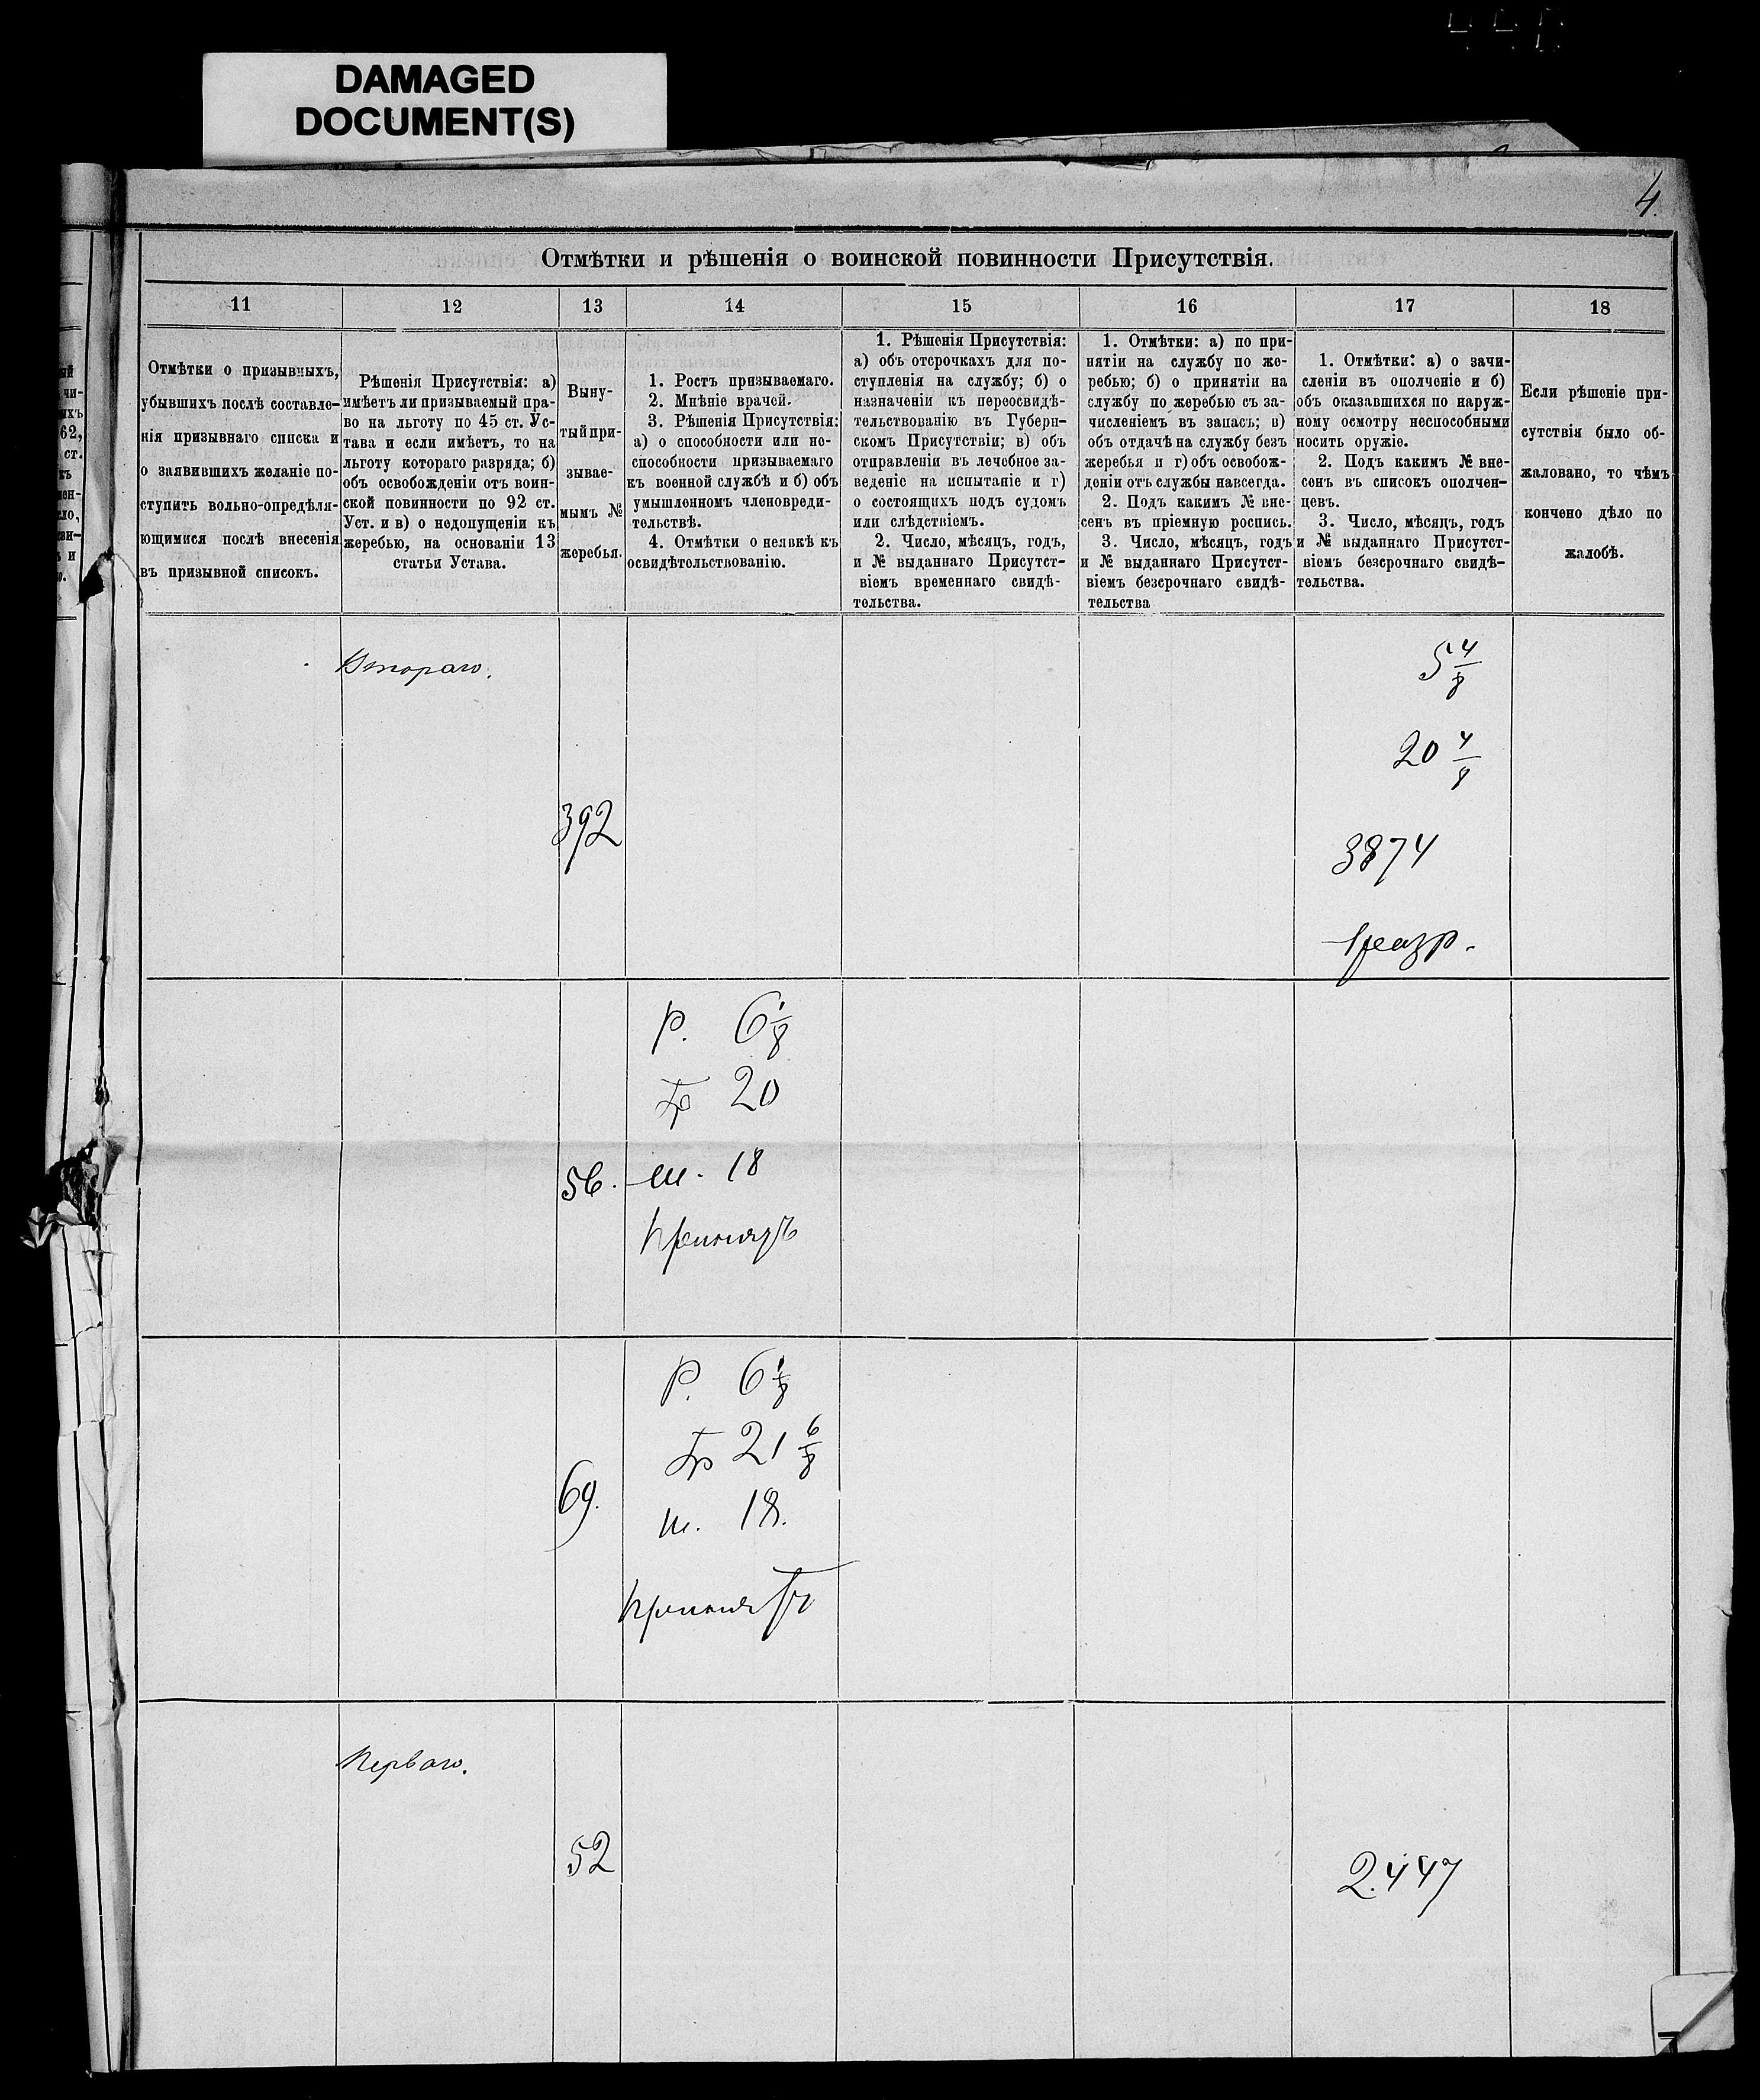 DAMAGED
DOCUMENT(S)
4.
Отмѣтки и рѣшенія о воинской повинности Присутствія.
11
12
13
14
15
16
17
18
Отмѣтки о призывныхъ,
убывшихъ послѣ составле-
нія призывнаго списка и
о заявившихъ желаніе по-
ступить вольно-опредѣля-
ющимися послѣ внесенія
въ призывной списокъ.
Рѣшенія Присутствія: а)
имѣетъ ли призываемый пра-
во на льготу по 45 ст. Ус-
тава и если имѣетъ, то на
льготу котораго разряда; б)
объ освобожденіи отъ воин-
ской повинности по 92 ст.
Уст. и в) о недопущеніи къ
жеребью, на основаніи 13
статьи Устава.
Выну-
тый при-
зывае-
мымъ №
жеребья.
1. Ростъ призываемаго.
2. Мнѣніе врачей.
3. Рѣшенія Присутствія:
а) о способности или не-
способности призываемаго
къ военной службѣ и б) объ
умышленномъ членовреди-
тельствѣ.
4. Отмѣтки о неявкѣ къ
освидѣтельствованію.
1. Рѣшенія Присутствія:
а) объ отсрочкахъ для по-
ступленія на службу; б) о
назначеніи къ переосвидѣ-
тельствованію въ Губерн-
скомъ Присутствіи; в) объ
отправленіи въ лечебное за-
веденіе на испытаніе и г)
о состоящихъ подъ судомъ
или слѣдствіемъ.
2. Число, мѣсяцъ, годъ,
и № выданнаго Присутст-
віемъ временнаго свидѣ-
тельства.
1. Отмѣтки: а) по при-
нятіи на службу по же-
ребью; б) о принятіи на
службу по жеребью съ за-
численіемъ въ запасъ; в)
объ отдачѣ на службу безъ
жеребья и г) объ освобож-
деніи отъ службы навсегда.
2. Подъ какимъ № вне-
сенъ въ пріемную роспись.
3. Число, мѣсяцъ, годъ
и № выданнаго Присутст-
віемъ безсрочнаго свидѣ-
тельства
1. Отмѣтки: а) о зачи-
сленіи въ ополченіе и б)
объ оказавшихся по наруж-
ному осмотру неспособными
носить оружіе.
2. Подъ какимъ № вне-
сенъ въ списокъ ополчен-
цевъ.
3. Число, мѣсяцъ, годъ
и № выданнаго Присутст-
віемъ безсрочнаго свидѣ-
тельства.
Если рѣшеніе при-
сутствія было об-
жаловано, то чѣмъ
кончено дѣло по
жалобѣ.
Втораго.
392
5 4/8
20 4/8
3874
1 разр.
56.
Р. 6 1/8
Гр 20
ш. 18
Принятъ
69.
Р. 6 1/8
Гр 21 6/8
ш. 18.
Принятъ
Перваго.
52
2.447